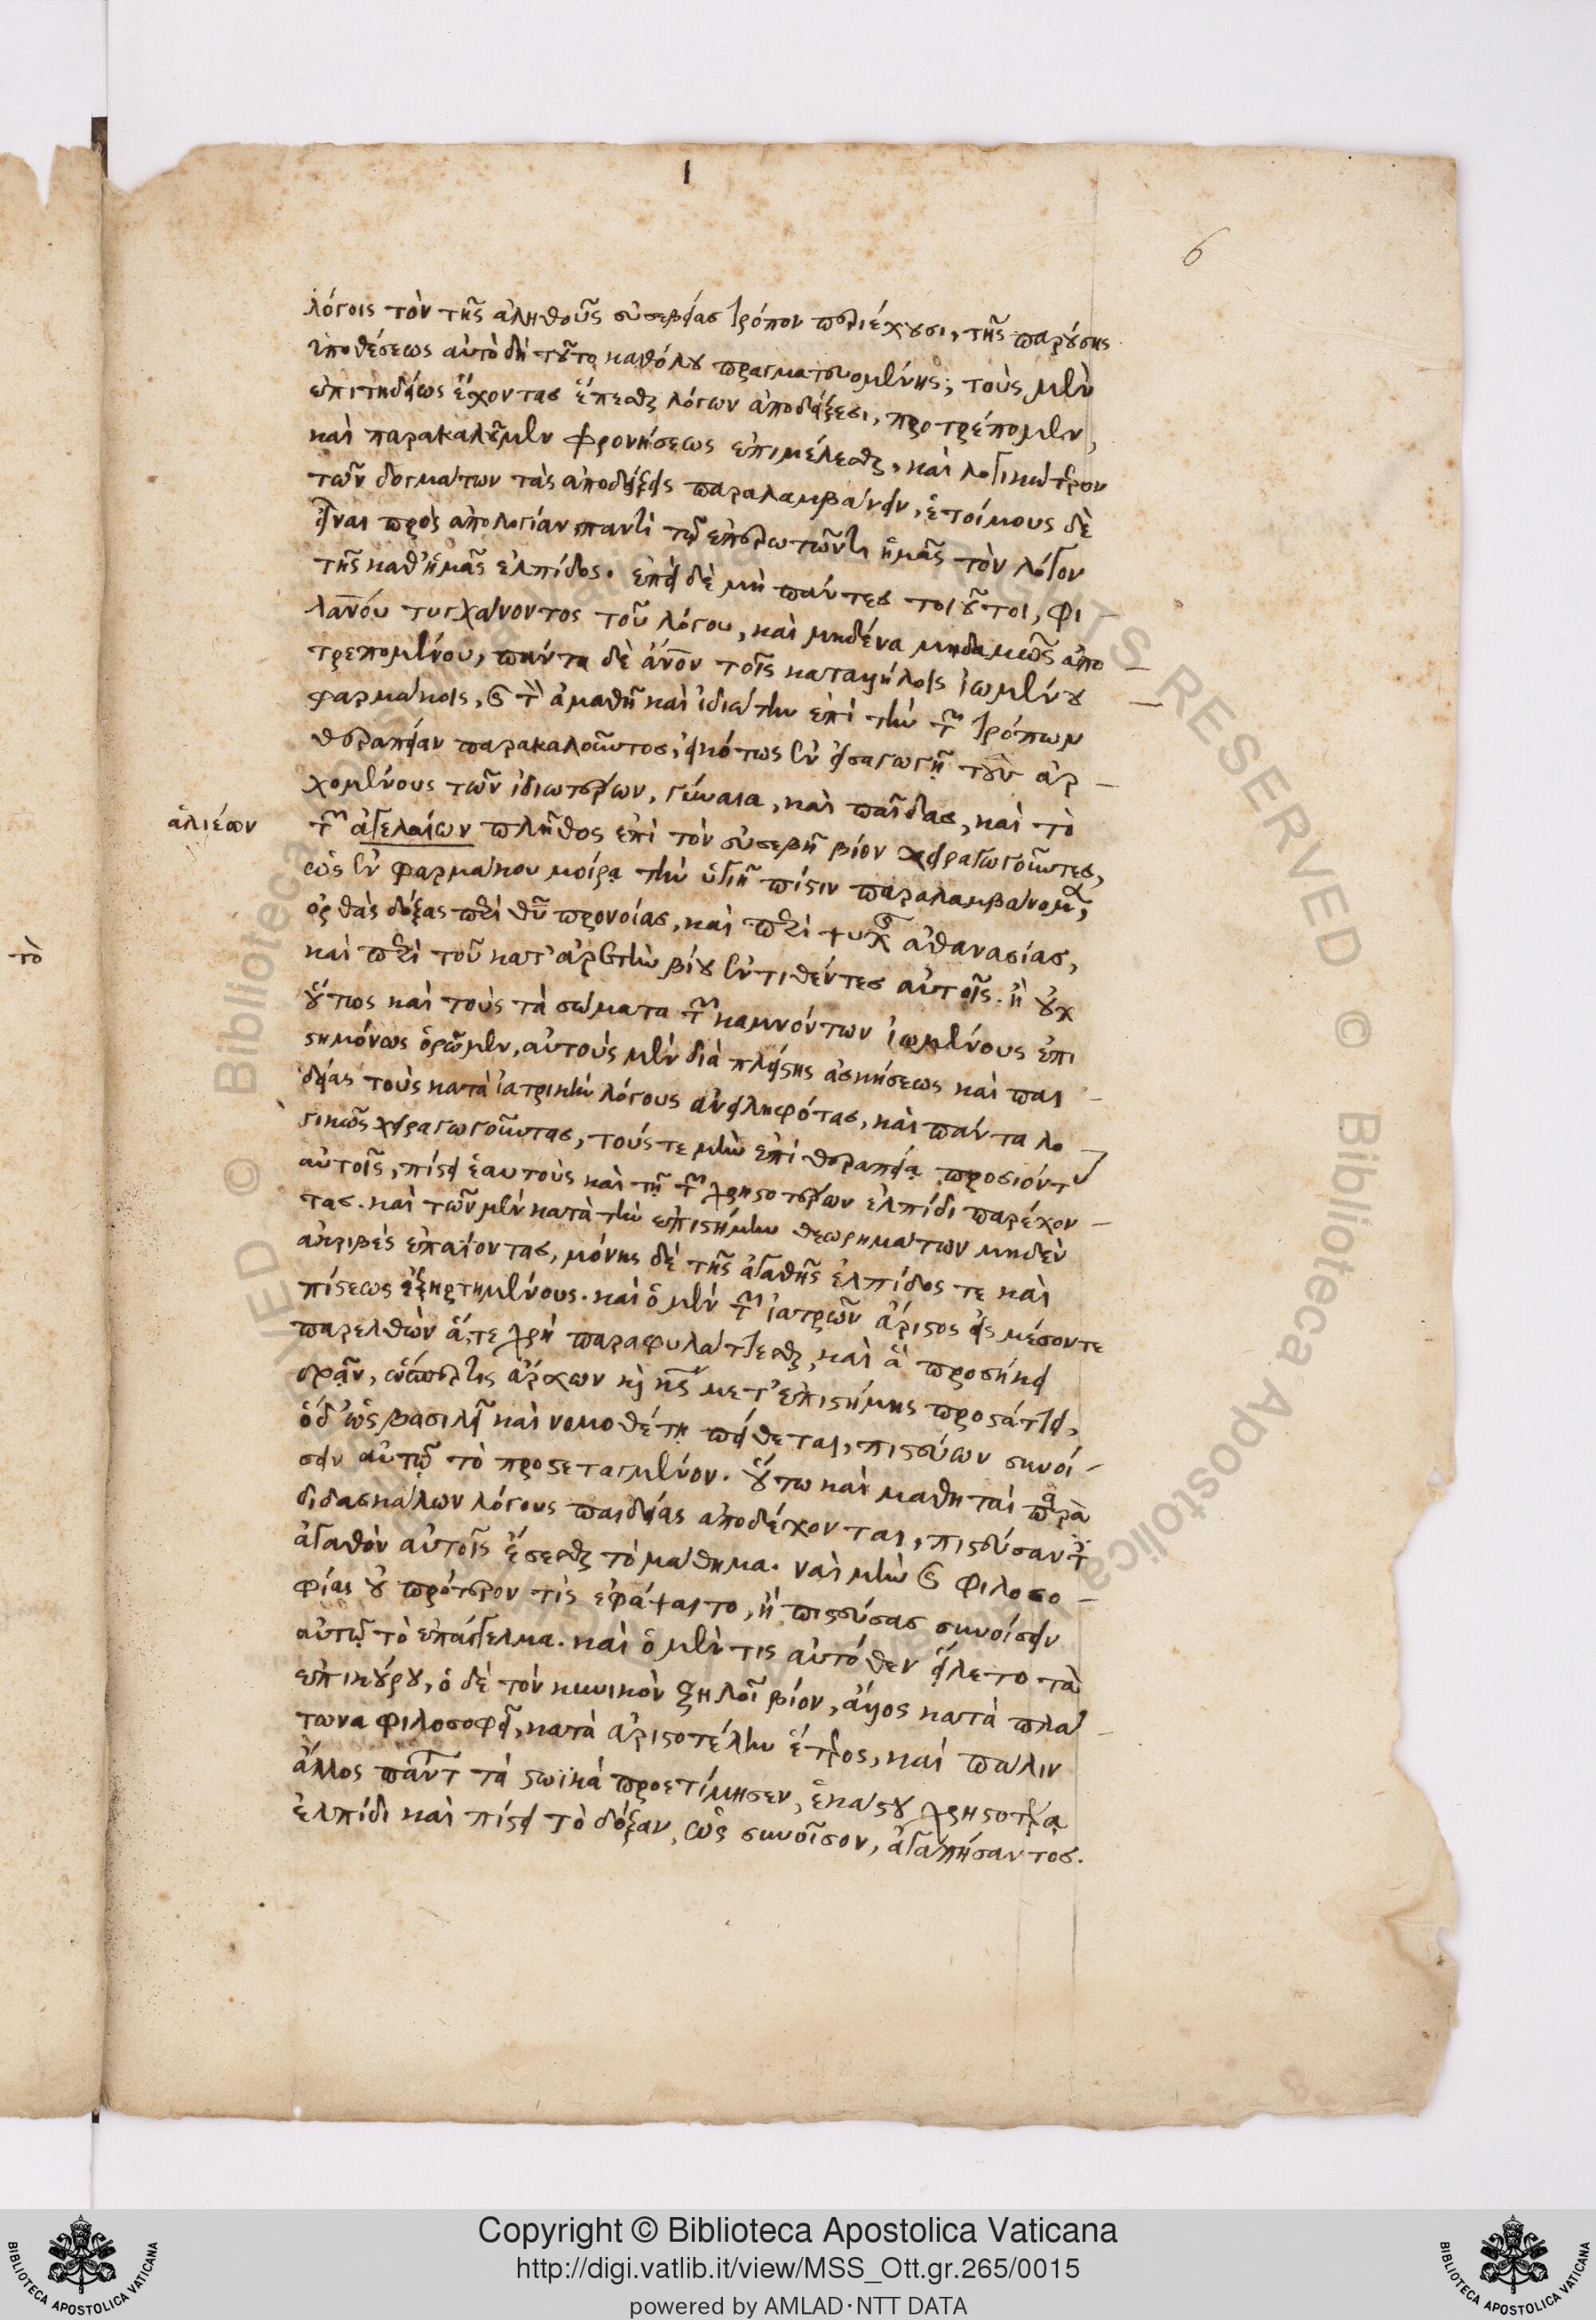 6
λόγοις τὸν τῆς ἀληθοῦς εὐσεβείας τρόπον περιέχουσι, τῆς παρούσης
ὑποθέσεως αὐτὸ δὴ τοῦτο καθόλου πραγματευομένης, τοὺς μὲν
ἐπιτηδείως ἔχοντας ἕπεσθαι λόγων ἀποδείξεσι, προτρέπομεν,
καὶ παρακαλοῦμεν φρονήσεως ἐπιμέλεσθαι, καὶ λογικώτερον
τῶν δογμάτων τὰς ἀποδείξεις παραλαμβάνειν, ἑτοίμους δὲ
εἶναι πρὸς ἀπολογίαν παντὶ τῷ ἐπερωτῶντι ἡμᾶς τὸν λόγον
τῆς καθ' ἡμᾶς ἐλπίδος. ἐπεὶ δὲ μὴ πάντες τοιοῦτοι, φι
λανου τυγχάνοντος τοῦ λόγου, καὶ μηδένα μηδαμῶς ἀπο
τρεπομένου, πάντα δὲ ἄνον τοῖς καταλλήλοις ἰωμένου
φαρμάκοις, καὶ τὸν ἀμαθῆ καὶ ἰδιώτην ἐπὶ τὴν τῶν τρόπων
θεραπείαν παρακαλοῦντος, εἰκότως ἐν εἰσαγωγῇ τοὺς ἀρ
χομένους τῶν ἰδιωτέρων, γύναια, καὶ παῖδας, καὶ τὸ
ἁλιέων
τῶν ἀγελαίων πλῆθος ἐπὶ τὸν εὐσεβῆ βίον χειραγωγοῦντες,
ὡς ἐν φαρμάκου μοίρᾳ τὴν ὑγιῆ πίστιν παραλαμβάνομεν,
ὀρθὰς δόξας περὶ θυ προνοίας, καὶ περὶ ψυχῆς ἀθανασίας,
τὸ
καὶ περὶ τοῦ κατ' ἀρετὴν βίου ἐντιθέντες αὐτοῖς. ἢ οὐχ
οὕτως καὶ τοὺς τὰ σώματα τῶν καμνόντων ἰωμένους ἐπι
στημόνως ὁρῶμεν, αὐτοὺς μὲν διὰ πλείστης ἀσκήσεως καὶ παι
δείας τοὺς κατὰ ἰατρικὴν λόγους ἀνειληφότας, καὶ πάντα λο
γικῶς χειραγωγοῦντας, τούς τε μὴν ἐπὶ θεραπείᾳ προσιόντας
αὐτοῖς, πίστει ἑαυτοὺς καὶ τῇ τῶν χρηστοτέρων ἐλπίδι παρέχον
τας. καὶ τῶν μὲν κατὰ τὴν ἐπιστήμην θεωρημάτων μηδὲν
ἀκριβὲς ἐπαΐοντας, μόνης δὲ τῆς ἀγαθῆς ἐλπίδος τε καὶ
πίστεως ἐξηρτημένους. καὶ ὁ μὲν τῶν ἰατρῶν ἄριστος εἰς μέσον τε
παρελθὼν ἅ, τε χρὴ παραφυλάττεσθαι, καὶ ἃ προσήκει
δρᾶν, ὥσπερ τις ἄρχων καὶ κς μετ' ἐπιστήμης προστάττει,
ὁ δ' ὡς βασιλεῖ καὶ νομοθέτῃ πείθεται, πιστεύων συνοί
σειν αὐτῷ τὸ προστεταγμένον. οὕτω καὶ μαθηταὶ παρὰ
διδασκάλων λόγους παιδείας ἀποδέχονται, πιστεύσαντες
ἀγαθὸν αὐτοῖς ἔσεσθαι τὸ μάθημα. ναὶ μὴν καὶ φιλοσο
φίας οὐ πρότερον τὶς ἐφάψαιτο, ἢ πιστεύσας συνοίσειν
αὐτῷ τὸ ἐπάγγελμα. καὶ ὁ μὲν τις αὐτόθεν εἵλετο τὰ
ἐπικούρου, ὁ δὲ τὸν κυνικὸν ζηλοῖ βίον, ἄλλος κατὰ πλά
τωνα φιλοσοφεῖ, κατὰ ἀριστοτέλην ἕτερος, καὶ πάλιν
ἄλλος πάντων τὰ στωϊκὰ προετίμησεν, ἑκάστου χρηστοτέρᾳ
ἐλπίδι καὶ πίστει τὸ δόξαν, ὡς συνοῖσον, ἀγαπήσαντος.
Copyright © Biblioteca Apostolica Vaticana
http://digi.vatlib.it/view/MSS_Ott.gr.265/0015
powered by AMLAD·NTT DATA